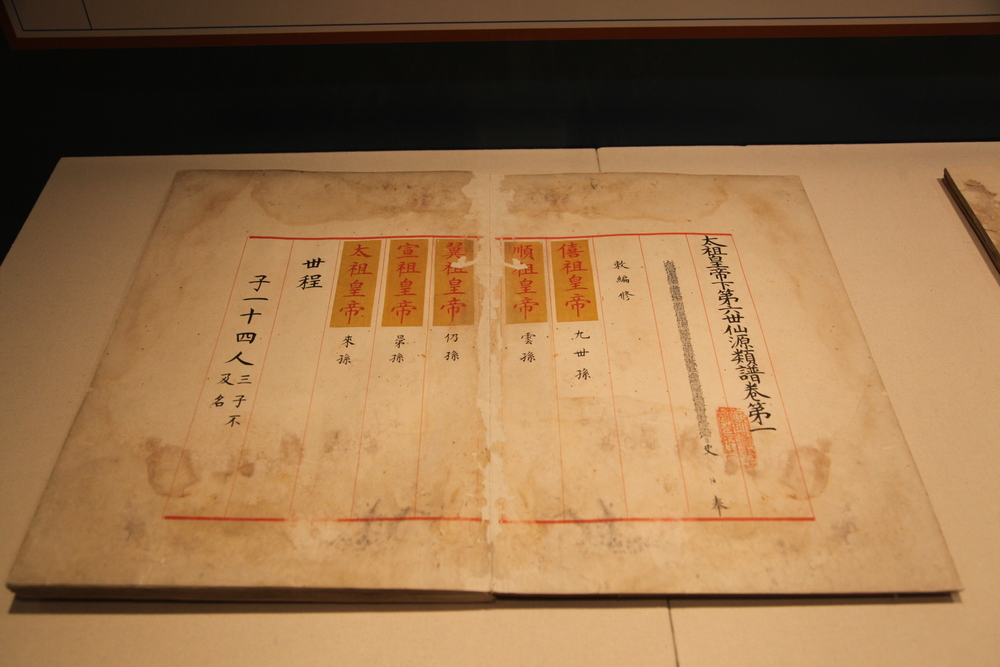 太祖皇帝下第六世仙源類譜卷第一
史 臣 奉
敕編修
僖祖皇帝 九世孫
順祖皇帝 雲孫
翼祖皇帝 仍孫
宣祖皇帝 晜孫
太祖皇帝 來孫
世程
子一十四人三子不及名